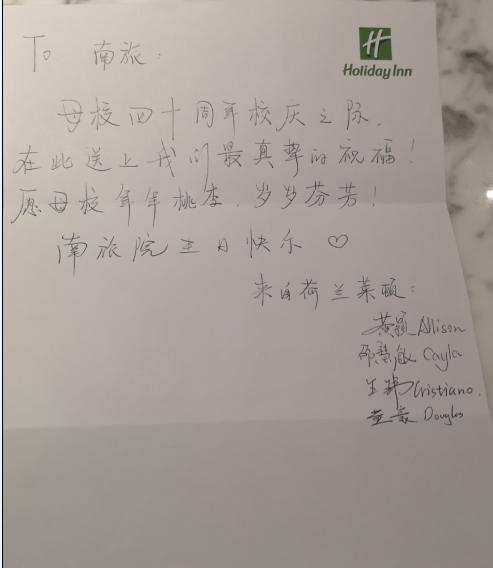 Holiday Inn
To 南旅:
母校四十周年校庆之际,
在此送上我们最真挚的祝福!
愿母校年年桃李,岁岁芬芳!
南旅院生日快乐♡
来自荷兰莱顿:
黄颖 Allison
邵慧敏 Cayla
Cristiano.
Douglas